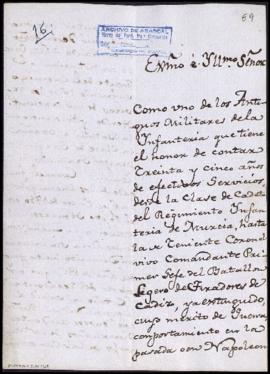 16.
59
ARCHIVO DE ABASCAL
Exmo é Yllmo Señor
Como uno de los Anti-
guos Militares de la
Infanteria que tiene
el honor de contar
Treinta y cinco años
de efectivos Servicios,
desde la Clase de Cadete
del Regimiento Infan-
teria de Murcia, hasta
la Teniente Coronel
vivo Comandante Pri-
mer Gefe del Batallon
Ligero de Tiradores de
Cadiz, ya extinguido,
cuyo merito de Guerra,
comportamiento en la
pasada con Napoleon